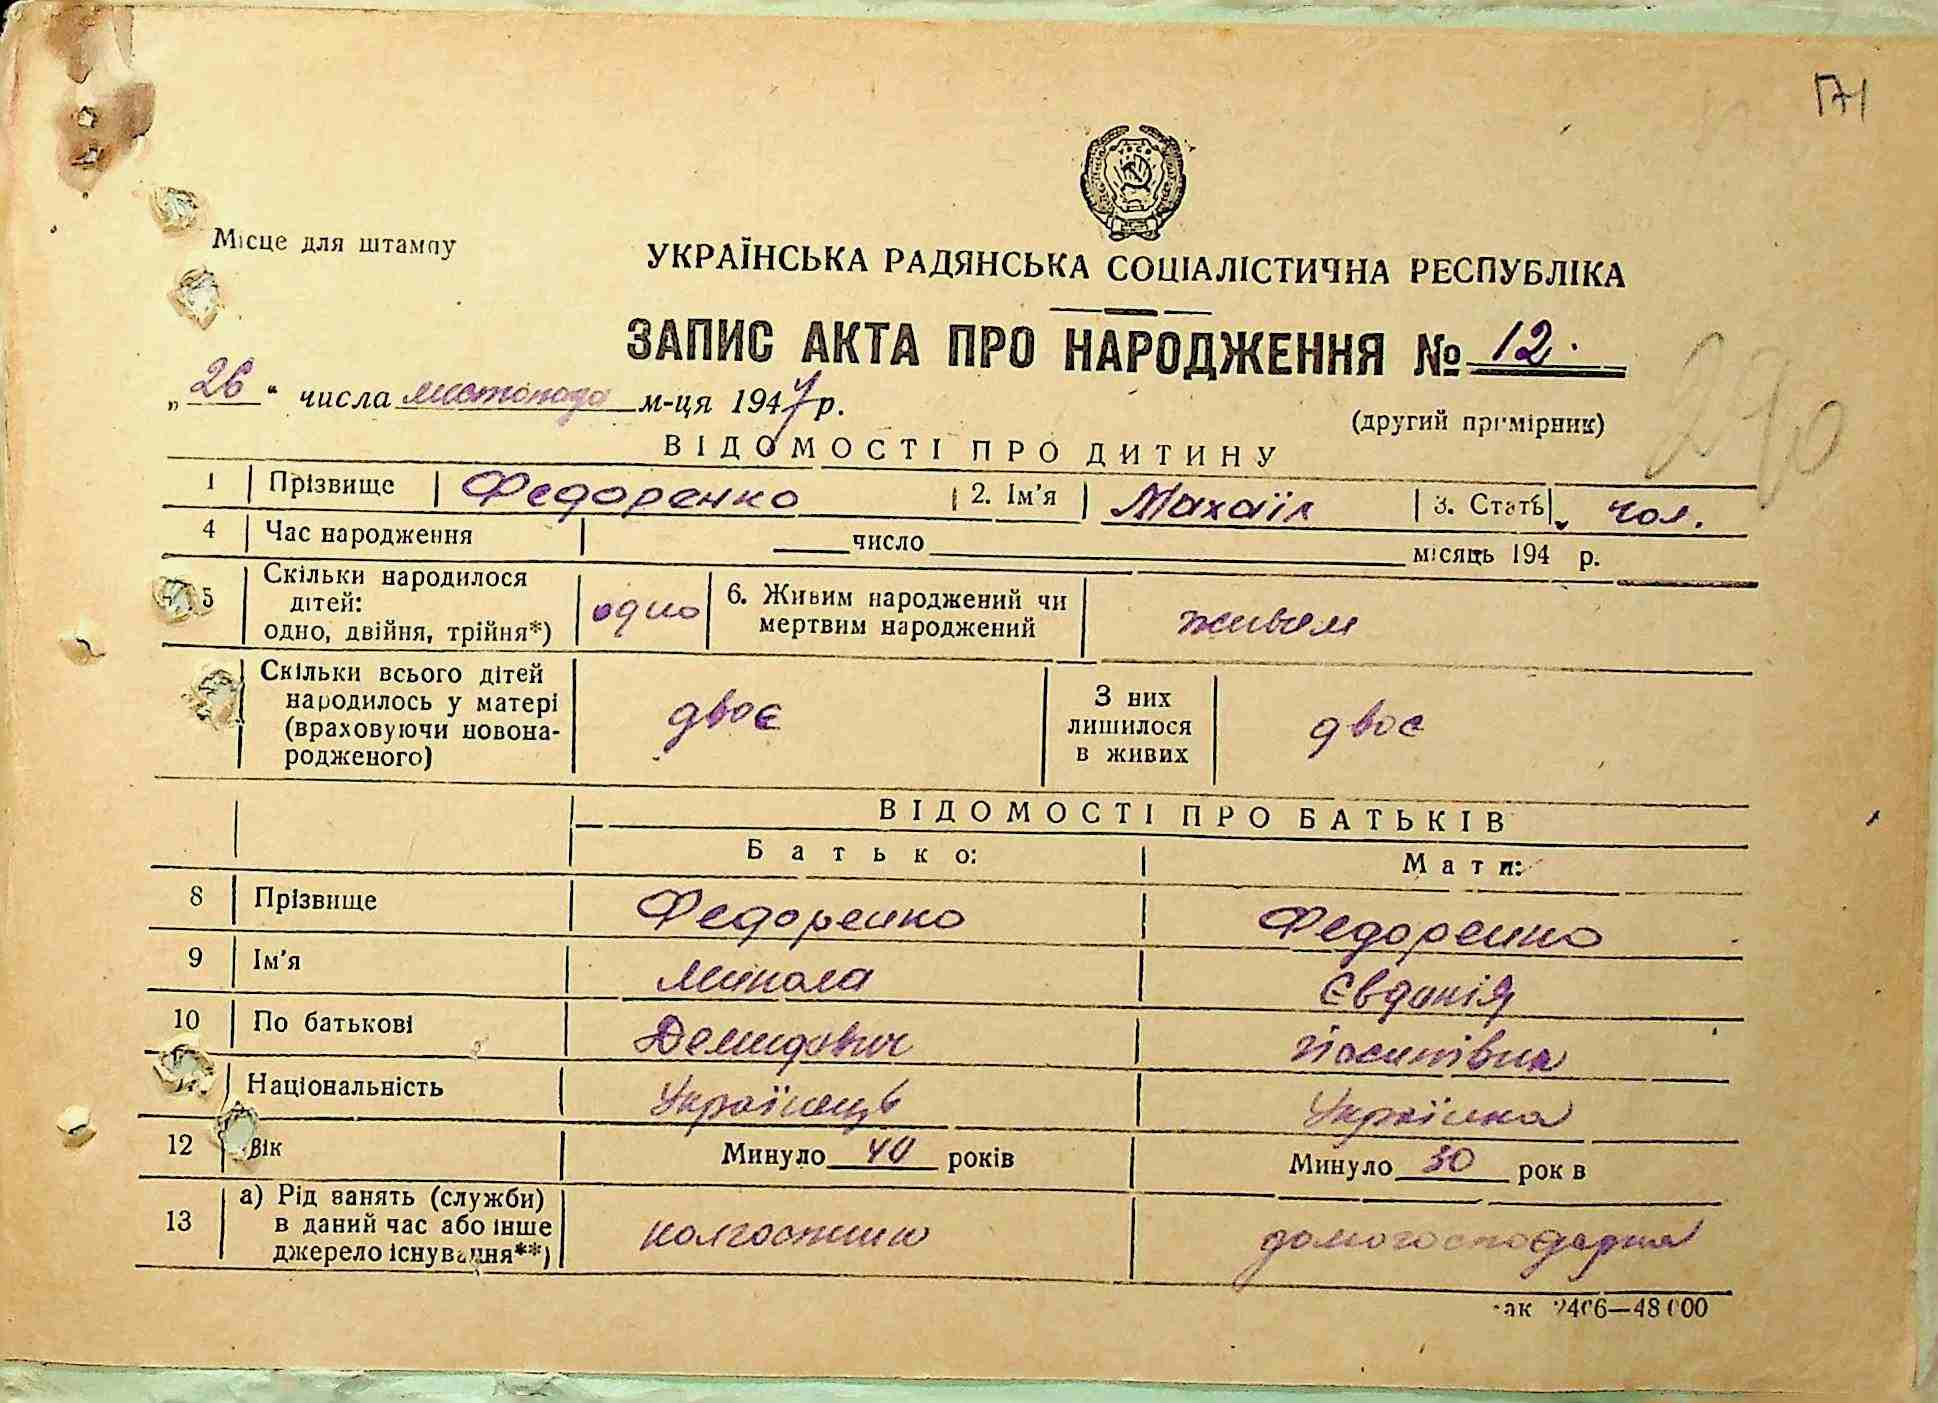 171
Місце для штампу
УКРАЇНСЬКА РАДЯНСЬКА СОЦІАЛІСТИЧНА РЕСПУБЛІКА
ЗАПИС АКТА ПРО НАРОДЖЕННЯ № 12.
„26“ числа листопада м-ця 1947 р.
(другий примірник)
270
ВІДОМОСТІ ПРО ДИТИНУ
1 Прізвище Федоренко 2. Ім'я Михаіл 3. Стать чол.
4 Час народження число місяць 194 р.
5 Скільки народилося дітей: одно, двійня, трійня*) одно 6. Живим народжений чи мертвим народжений живим
Скільки всього дітей народилось у матері (враховуючи новонародженого) двоє З них лишилося в живих двоє
ВІДОМОСТІ ПРО БАТЬКІВ
Батько: Мати:
8 Прізвище Федоренко Федоренко
9 Ім'я Микола Євдокія
10 По батькові Демидович Йосипівна
Національність Українець Українка
12 Вік Минуло 40 років Минуло 30 рок в
13 а) Рід занять (служби) в даний час або інше джерело існування**) колгоспник домогосподарка
ак 2406—48000